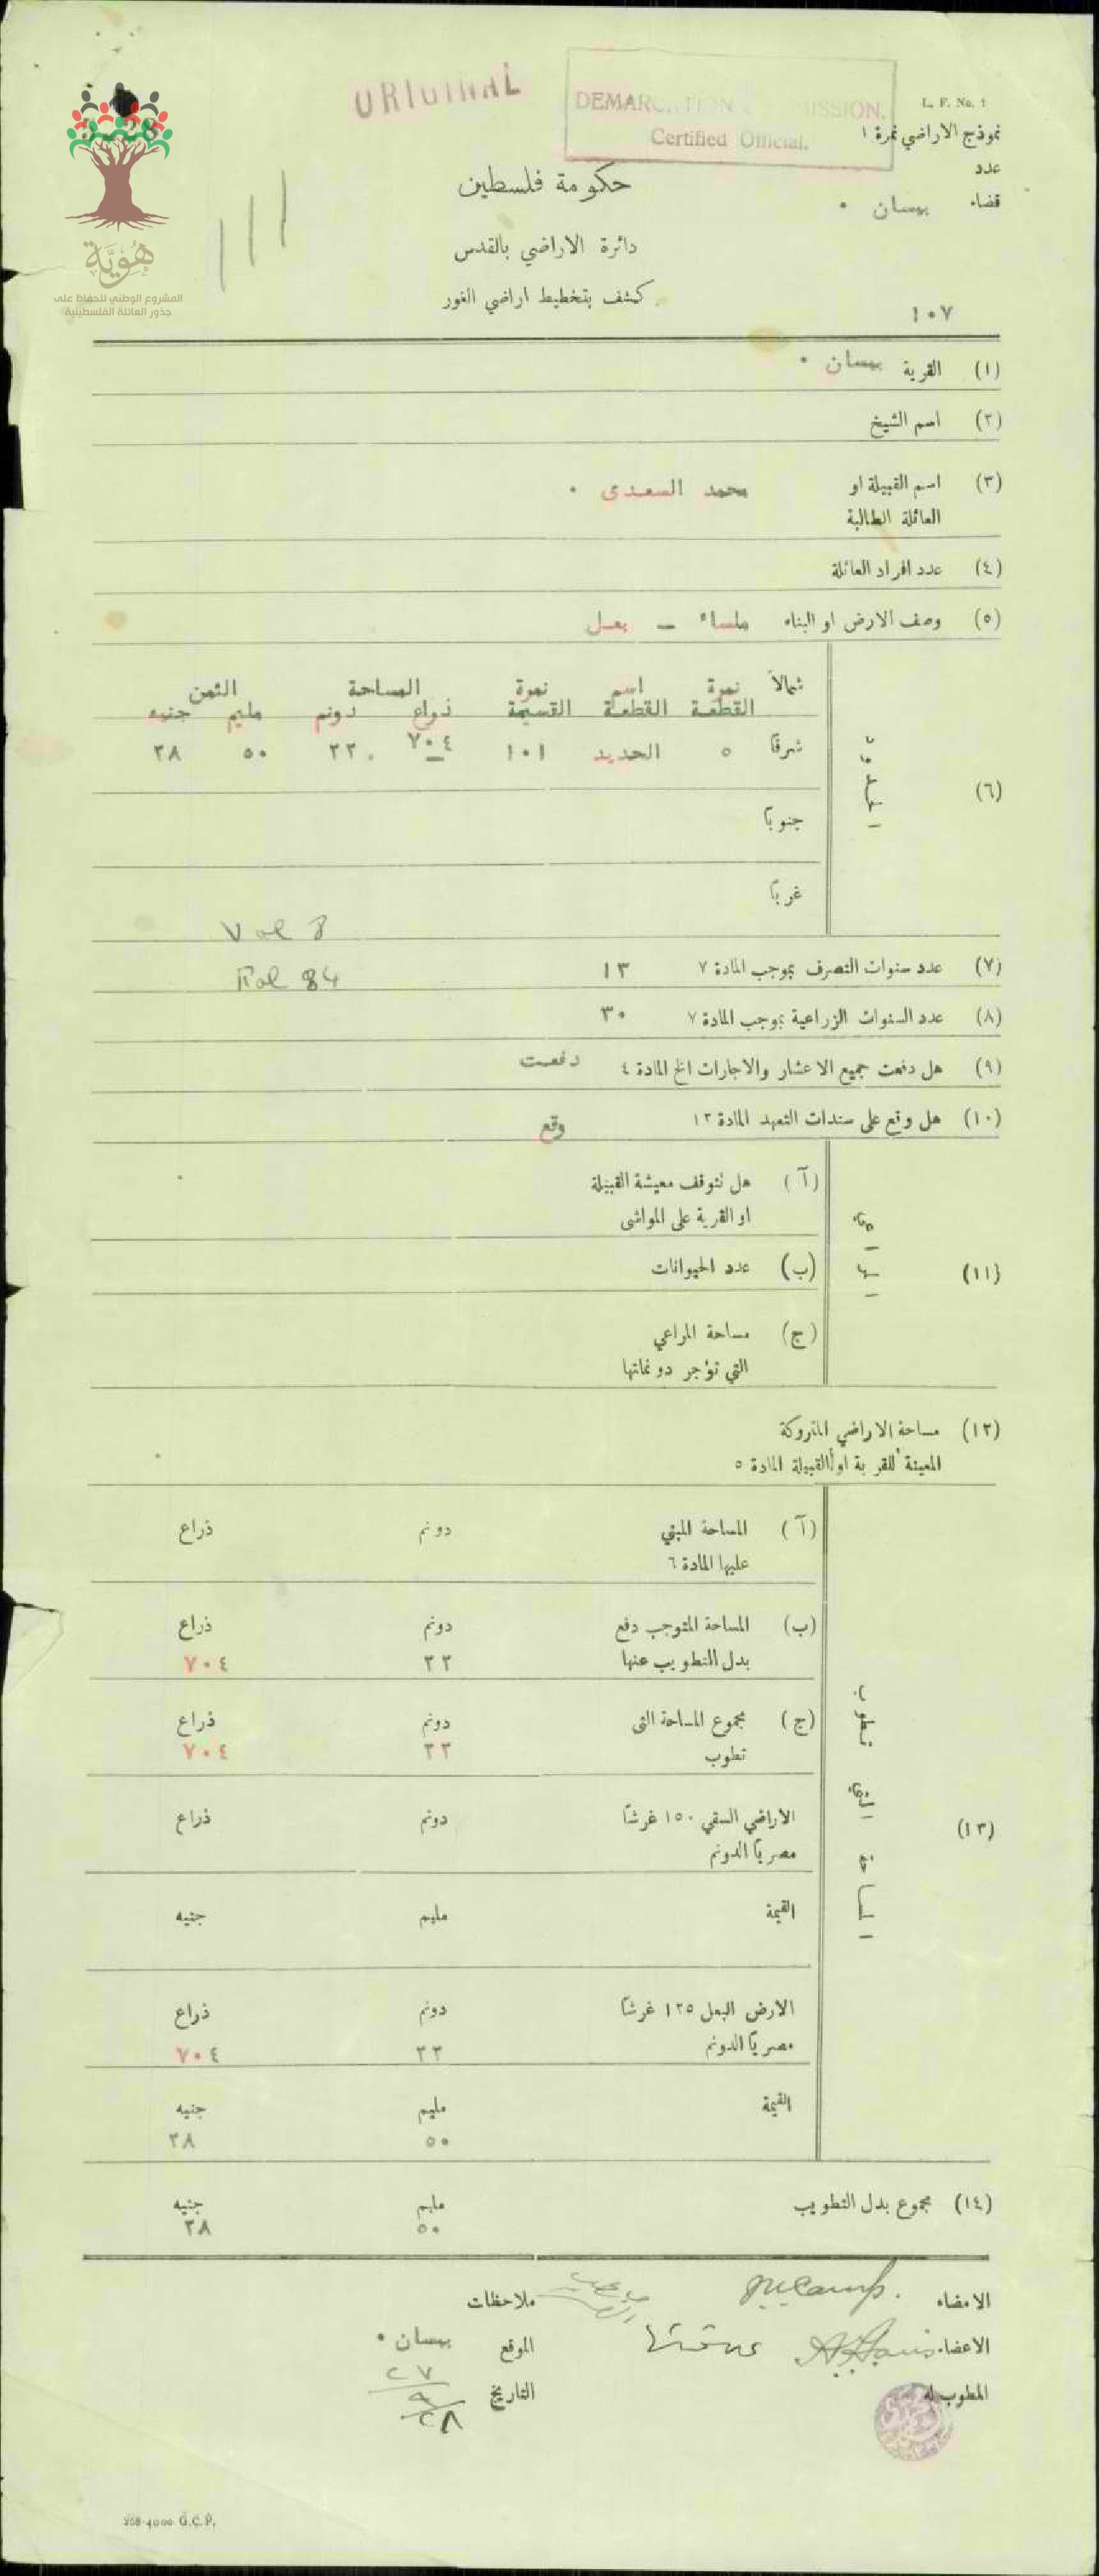 ORIGINAL
DEMARCATION COMMISSION.
Certified Official.
L. F. No. 1
نموذج الاراضي نمرة ١
عدد
قضاء بيسان ٠
هُوِيَّة
المشروع الوطني للحفاظ على
جذور العائلة الفلسطينية
حكومة فلسطين
دائرة الاراضي بالقدس
كشف بتخطيط اراضي الغور
١٠٧
(١) القرية بيسان ٠
(٢) اسم الشيخ
(٣) اسم القبيلة او محمد السعدى ٠
العائلة الطالبة
(٤) عدد افراد العائلة
(٥) وصف الارض او البناء ملساء – بعل
(٦) الحدود
شمالاً نمرة اسم نمرة المساحة الثمن
القطعة القطعة القسيمة ذراع دونم مليم جنيه
شرقاً ٥ الحديد ١٠١ ٧٠٤ ٢٢ ٥٠ ٢٨
جنوباً
غرباً
Vol 8
Fol 84
(٧) عدد سنوات التصرف بموجب المادة ٧ ١٣
(٨) عدد السنوات الزراعية بموجب المادة ٧ ٣٠
(٩) هل دفعت جميع الاعشار والاجارات الخ المادة ٤ دفعت
(١٠) هل وقع على سندات التعهد المادة ١٣ وقع
(١١) المراعي
(آ) هل تتوقف معيشة القبيلة
او القرية على المواشى
(ب) عدد الحيوانات
(ج) مساحة المراعي
التي تؤجر دونماتها
(١٢) مساحة الاراضي المتروكة
المعينة للقرية او القبيلة المادة ٥
(١٣)
(آ) المساحة المبني دونم ذراع
عليها المادة ٦
(ب) المساحة المتوجب دفع دونم ذراع
بدل التطويب عنها ٢٢ ٧٠٤
(ج) مجموع المساحة التى دونم ذراع
تطوب ٢٢ ٧٠٤
الاراضي السقي ١٥٠ غرشاً دونم ذراع
مصرياً الدونم
القيمة مليم جنيه
الارض البعل ١٢٥ غرشاً دونم ذراع
مصرياً الدونم ٢٢ ٧٠٤
القيمة مليم جنيه
٥٠ ٢٨
(١٤) مجموع بدل التطويب مليم جنيه
٥٠ ٢٨
الامضاء ملاحظات
الاعضاء الموقع بيسان ٠
المطوب له التاريخ ٢٧/٩/٢٨
268-4000 G.C.P.